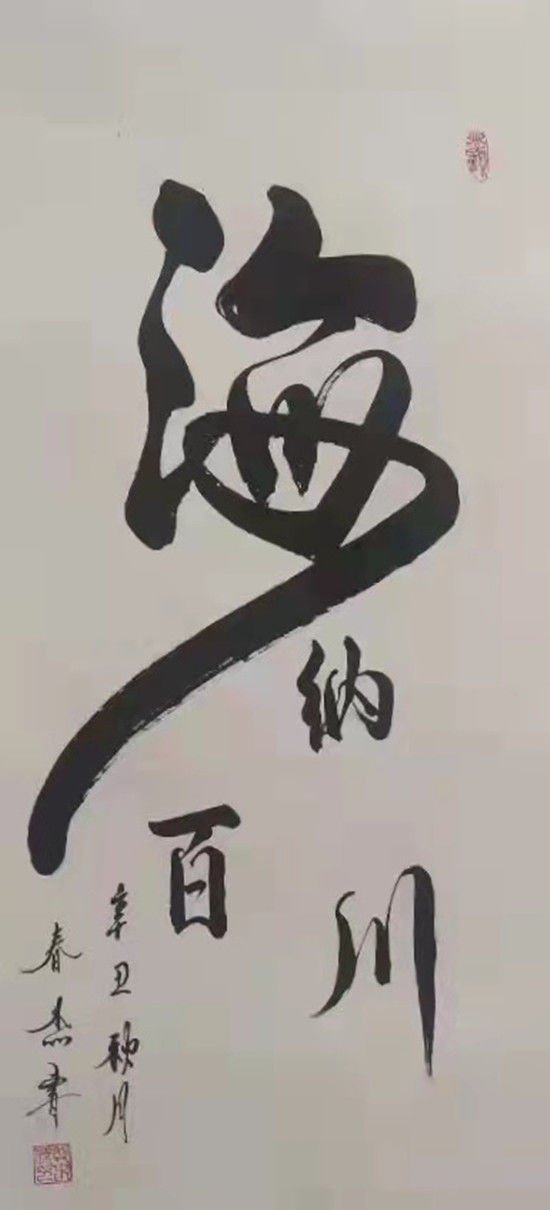 海
纳
百
川
辛丑秋月
春杰書